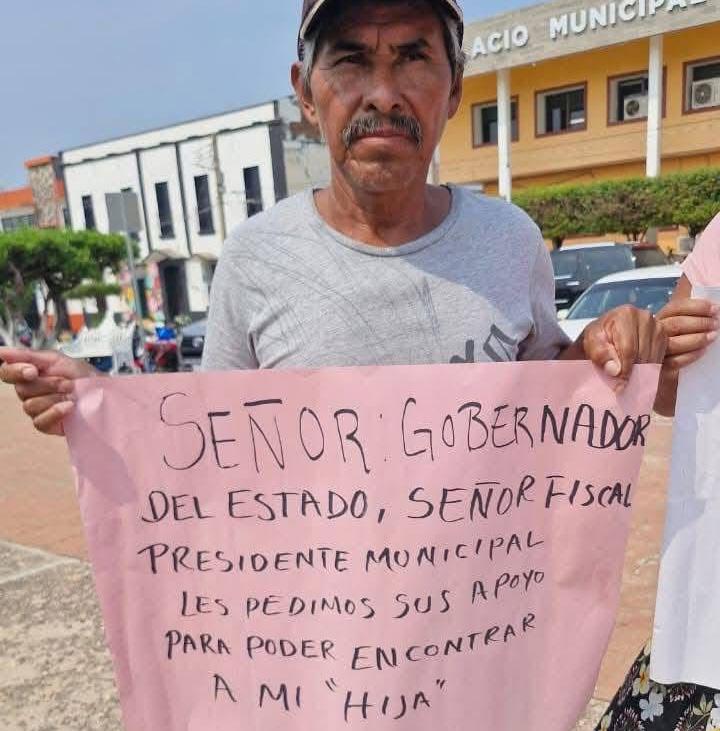 ACIO MUNICIPAL
SEÑOR: GOBERNADOR
DEL ESTADO, SEÑOR FISCAL
PRESIDENTE MUNICIPAL
LES PEDIMOS SUS APOYO
PARA PODER ENCONTRAR
A MI "HIJA"